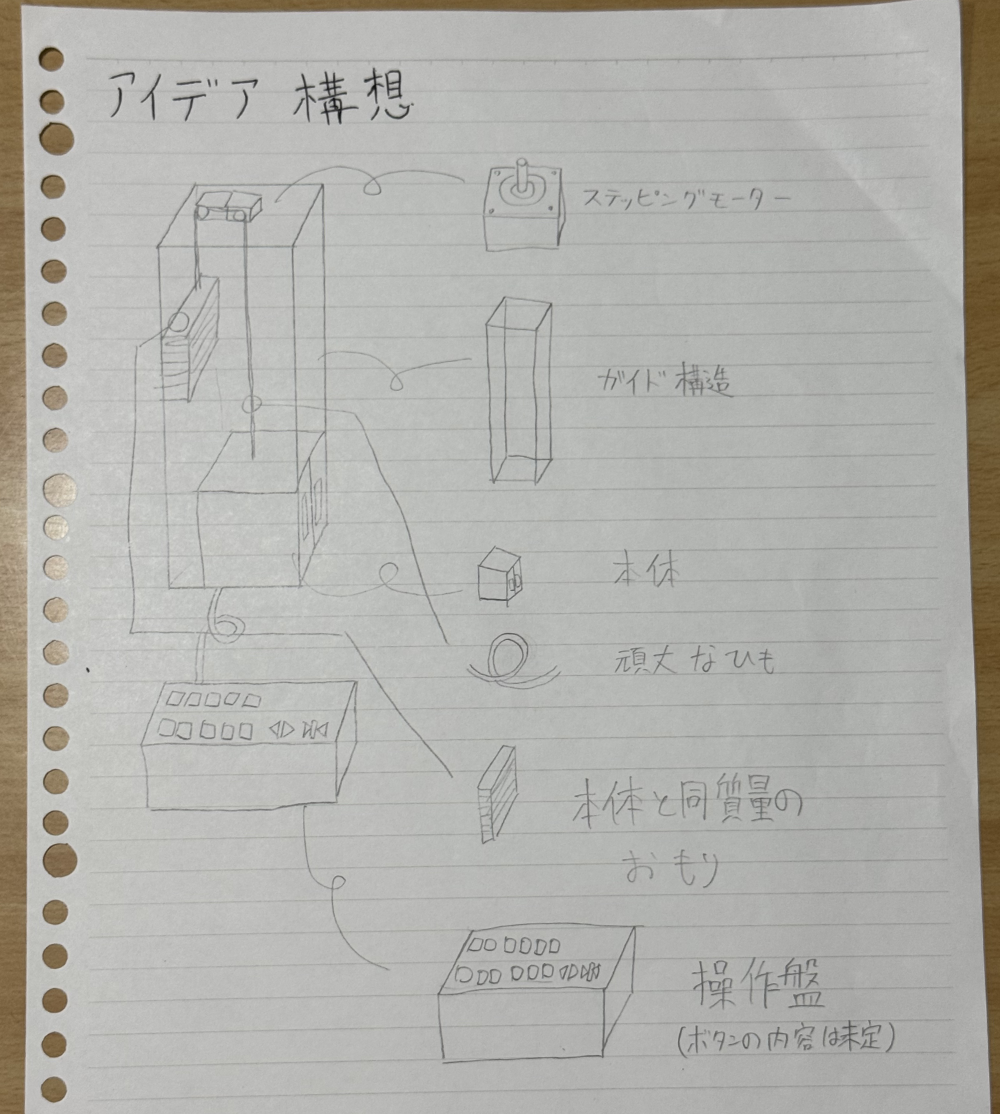 アイデア 構想
ステッピングモーター
ガイド構造
本体
頑丈なひも
本体と同質量の
おもり
操作盤
(ボタンの内容は未定)